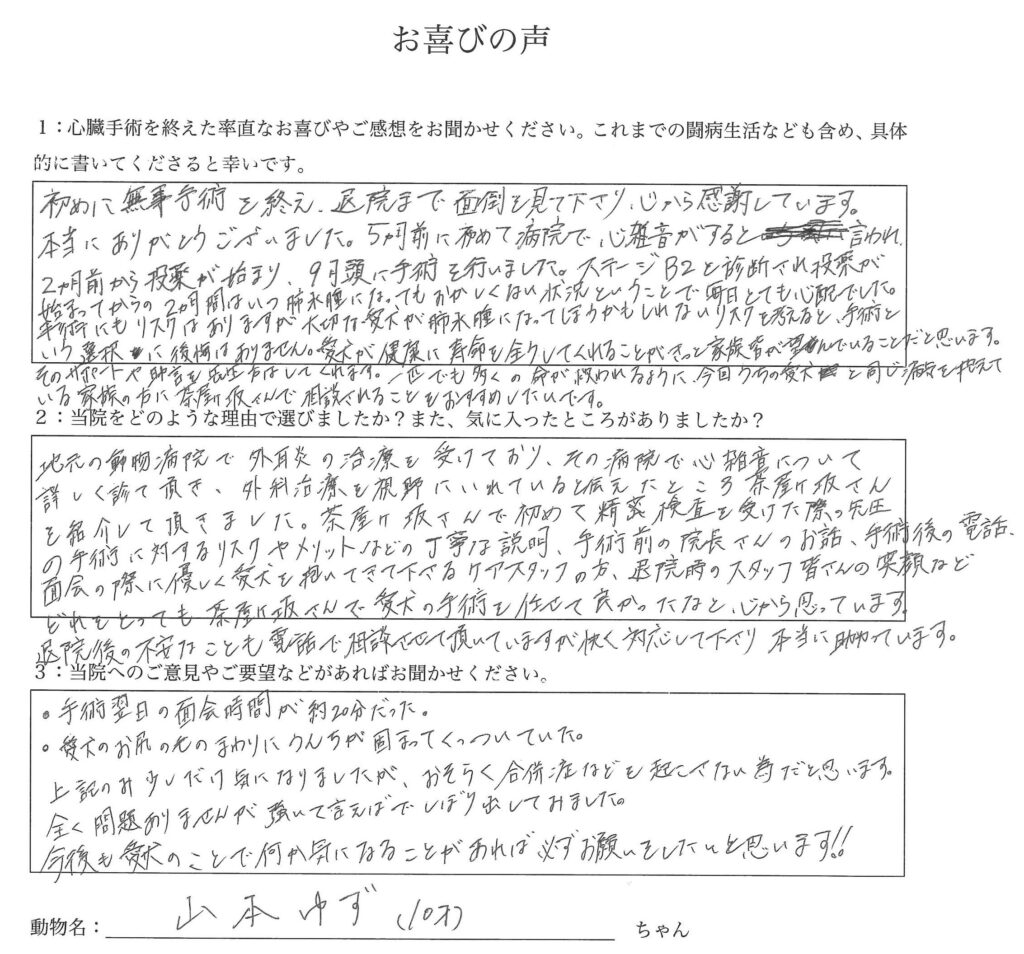 お喜びの声
1：心臓手術を終えた率直なお喜びやご感想をお聞かせください。これまでの闘病生活なども含め、具体
的に書いてくださると幸いです。
初めに無事手術を終え、退院まで面倒を見て下さり、心から感謝しています。
本当にありがとうございました。5ヵ月前に初めて病院で心雑音がすると言われ、
2ヵ月前から投薬が始まり、9月頭に手術を行いました。ステージB2と診断され投薬が
始まってからの2ヵ月間はいつ肺水腫になってもおかしくない状況ということで毎日とても心配でした。
手術にもリスクはありますが大切な愛犬が肺水腫になってしまうかもしれないリスクを考えると、手術と
いう選択に後悔はありません。愛犬が健康に寿命を全うしてくれることがきっと家族皆が望んでいることだと思います。
そのサポートや助言を先生方はしてくれます。一匹でも多くの命が救われるように、今回うちの愛犬と同じ病気を抱えて
いる家族の方に茶屋ヶ坂さんで相談されることをおすすめしたいです。
2：当院をどのような理由で選びましたか？また、気に入ったところがありましたか？
地元の動物病院で外耳炎の治療を受けており、その病院で心雑音について
詳しく診て頂き、外科治療を視野にいれていると伝えたところ茶屋ヶ坂さん
を紹介して頂きました。茶屋ヶ坂さんで初めて精密検査を受けた際の先生
の手術に対するリスクやメリットなどの丁寧な説明、手術前の院長さんのお話、手術後の電話、
面会の際に優しく愛犬を抱いてきて下さるケアスタッフの方、退院時のスタッフ皆さんの笑顔など
どれをとっても茶屋ヶ坂さんで愛犬の手術を任せて良かったなと、心から思っています。
退院後の不安なことも電話で相談させて頂いていますが快く対応して下さり本当に助かっています。
3：当院へのご意見やご要望などがあればお聞かせください。
・手術翌日の面会時間が約20分だった。
・愛犬のお尻の毛のまわりにうんちが固まってくっついていた。
上記のみ少しだけ気になりましたが、おそらく合併症なども起こさない為だと思います。
全く問題ありませんが強いて言えばでしぼり出してみました。
今後も愛犬のことで何か気になることがあれば必ずお願いをしたいと思います!!
動物名：山本ゆず(10才)ちゃん